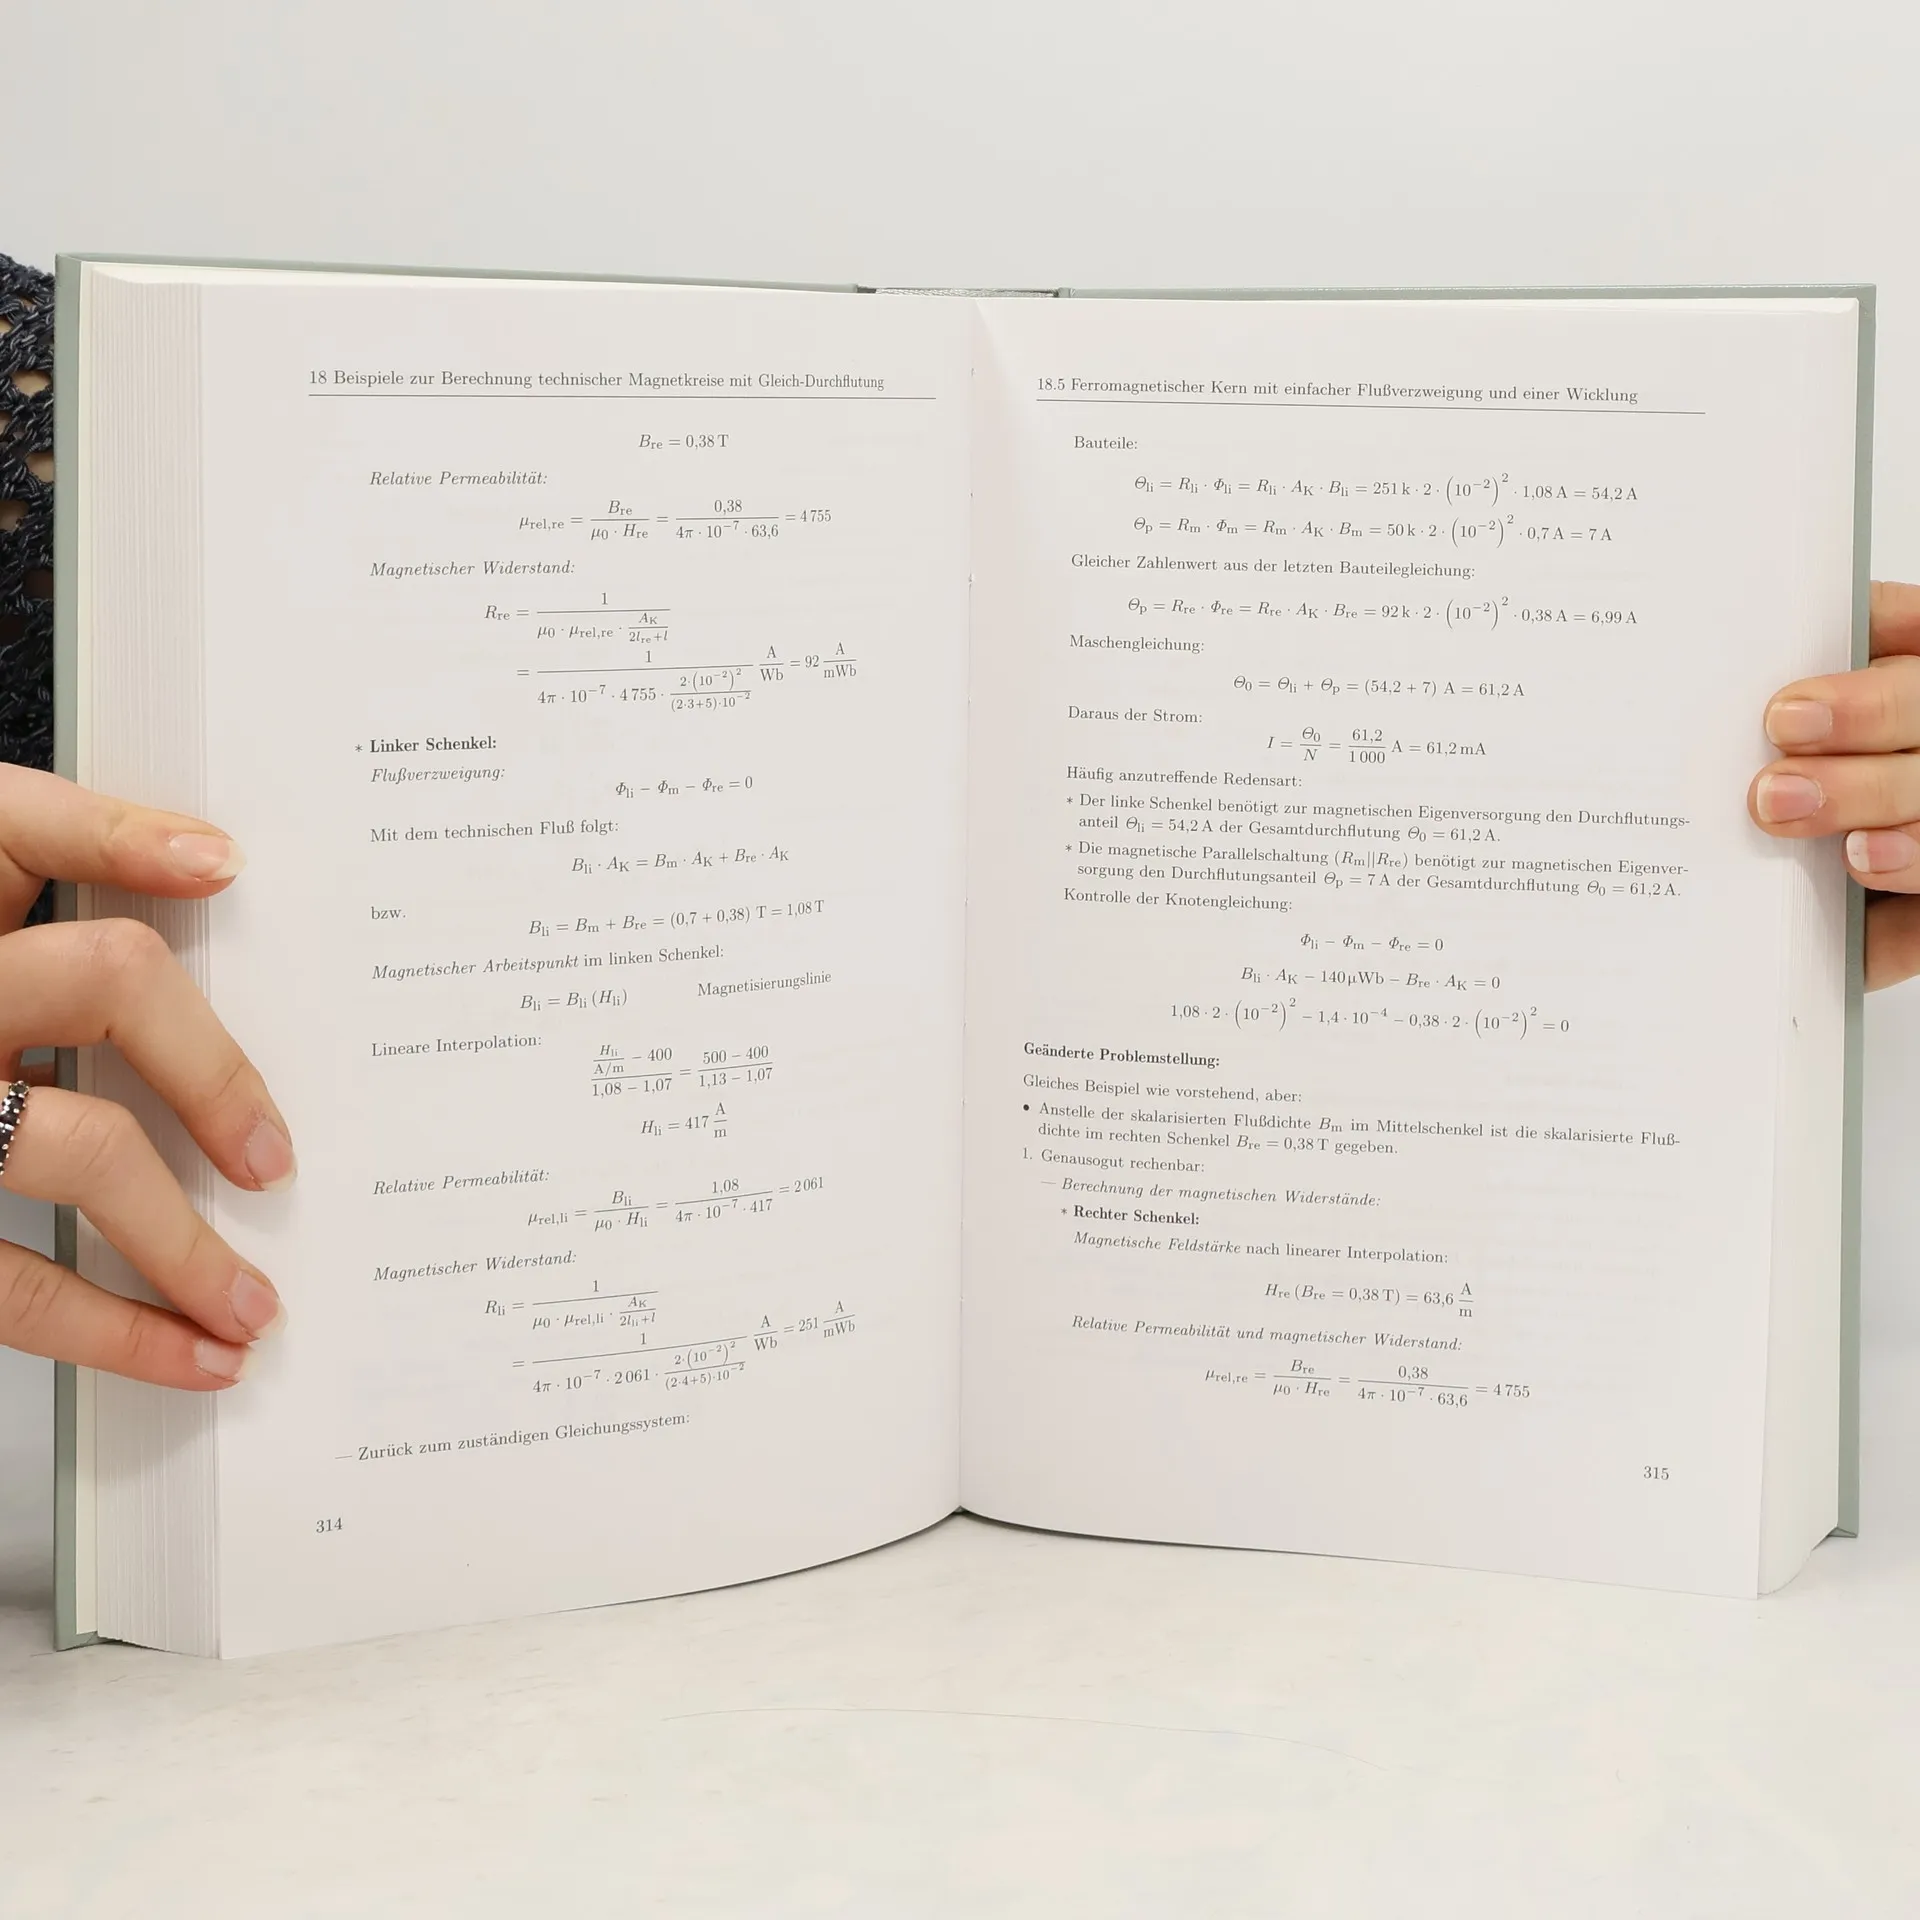 18 Beispiele zur Berechnung technischer Magnetkreise mit Gleich-Durchflutung
B_re = 0,38 T
Relative Permeabilität:
μ_rel,re = B_re / (μ_0 · H_re) = 0,38 / (4π · 10^−7 · 63,6) = 4 755
Magnetischer Widerstand:
R_re = 1 / (μ_0 · μ_rel,re · A_K / (2l_re + l))
= 1 / (4π · 10^−7 · 4 755 · 2·(10^−2)^2 / ((2·3+5)·10^−2)) A/Wb = 92 A/mWb
* Linker Schenkel:
Flußverzweigung:
Φ_li − Φ_m − Φ_re = 0
Mit dem technischen Fluß folgt:
B_li · A_K = B_m · A_K + B_re · A_K
bzw.
B_li = B_m + B_re = (0,7 + 0,38) T = 1,08 T
Magnetischer Arbeitspunkt im linken Schenkel:
B_li = B_li (H_li) Magnetisierungslinie
Lineare Interpolation:
(H_li / (A/m) − 400) / (1,08 − 1,07) = (500 − 400) / (1,13 − 1,07)
H_li = 417 A/m
Relative Permeabilität:
μ_rel,li = B_li / (μ_0 · H_li) = 1,08 / (4π · 10^−7 · 417) = 2 061
Magnetischer Widerstand:
R_li = 1 / (μ_0 · μ_rel,li · A_K / (2l_li + l))
= 1 / (4π · 10^−7 · 2 061 · 2·(10^−2)^2 / ((2·4+5)·10^−2)) A/Wb = 251 A/mWb
— Zurück zum zuständigen Gleichungssystem:
314
18.5 Ferromagnetischer Kern mit einfacher Flußverzweigung und einer Wicklung
Bauteile:
Θ_li = R_li · Φ_li = R_li · A_K · B_li = 251 k · 2 · (10^−2)^2 · 1,08 A = 54,2 A
Θ_p = R_m · Φ_m = R_m · A_K · B_m = 50 k · 2 · (10^−2)^2 · 0,7 A = 7 A
Gleicher Zahlenwert aus der letzten Bauteilegleichung:
Θ_p = R_re · Φ_re = R_re · A_K · B_re = 92 k · 2 · (10^−2)^2 · 0,38 A = 6,99 A
Maschengleichung:
Θ_0 = Θ_li + Θ_p = (54,2 + 7) A = 61,2 A
Daraus der Strom:
I = Θ_0 / N = 61,2 / 1 000 A = 61,2 mA
Häufig anzutreffende Redensart:
* Der linke Schenkel benötigt zur magnetischen Eigenversorgung den Durchflutungs-
anteil Θ_li = 54,2 A der Gesamtdurchflutung Θ_0 = 61,2 A.
* Die magnetische Parallelschaltung (R_m||R_re) benötigt zur magnetischen Eigenver-
sorgung den Durchflutungsanteil Θ_p = 7 A der Gesamtdurchflutung Θ_0 = 61,2 A.
Kontrolle der Knotengleichung:
Φ_li − Φ_m − Φ_re = 0
B_li · A_K − 140 μWb − B_re · A_K = 0
1,08 · 2 · (10^−2)^2 − 1,4 · 10^−4 − 0,38 · 2 · (10^−2)^2 = 0
Geänderte Problemstellung:
Gleiches Beispiel wie vorstehend, aber:
• Anstelle der skalarisierten Flußdichte B_m im Mittelschenkel ist die skalarisierte Fluß-
dichte im rechten Schenkel B_re = 0,38 T gegeben.
1. Genausogut rechenbar:
— Berechnung der magnetischen Widerstände:
* Rechter Schenkel:
Magnetische Feldstärke nach linearer Interpolation:
H_re (B_re = 0,38 T) = 63,6 A/m
Relative Permeabilität und magnetischer Widerstand:
μ_rel,re = B_re / (μ_0 · H_re) = 0,38 / (4π · 10^−7 · 63,6) = 4 755
315